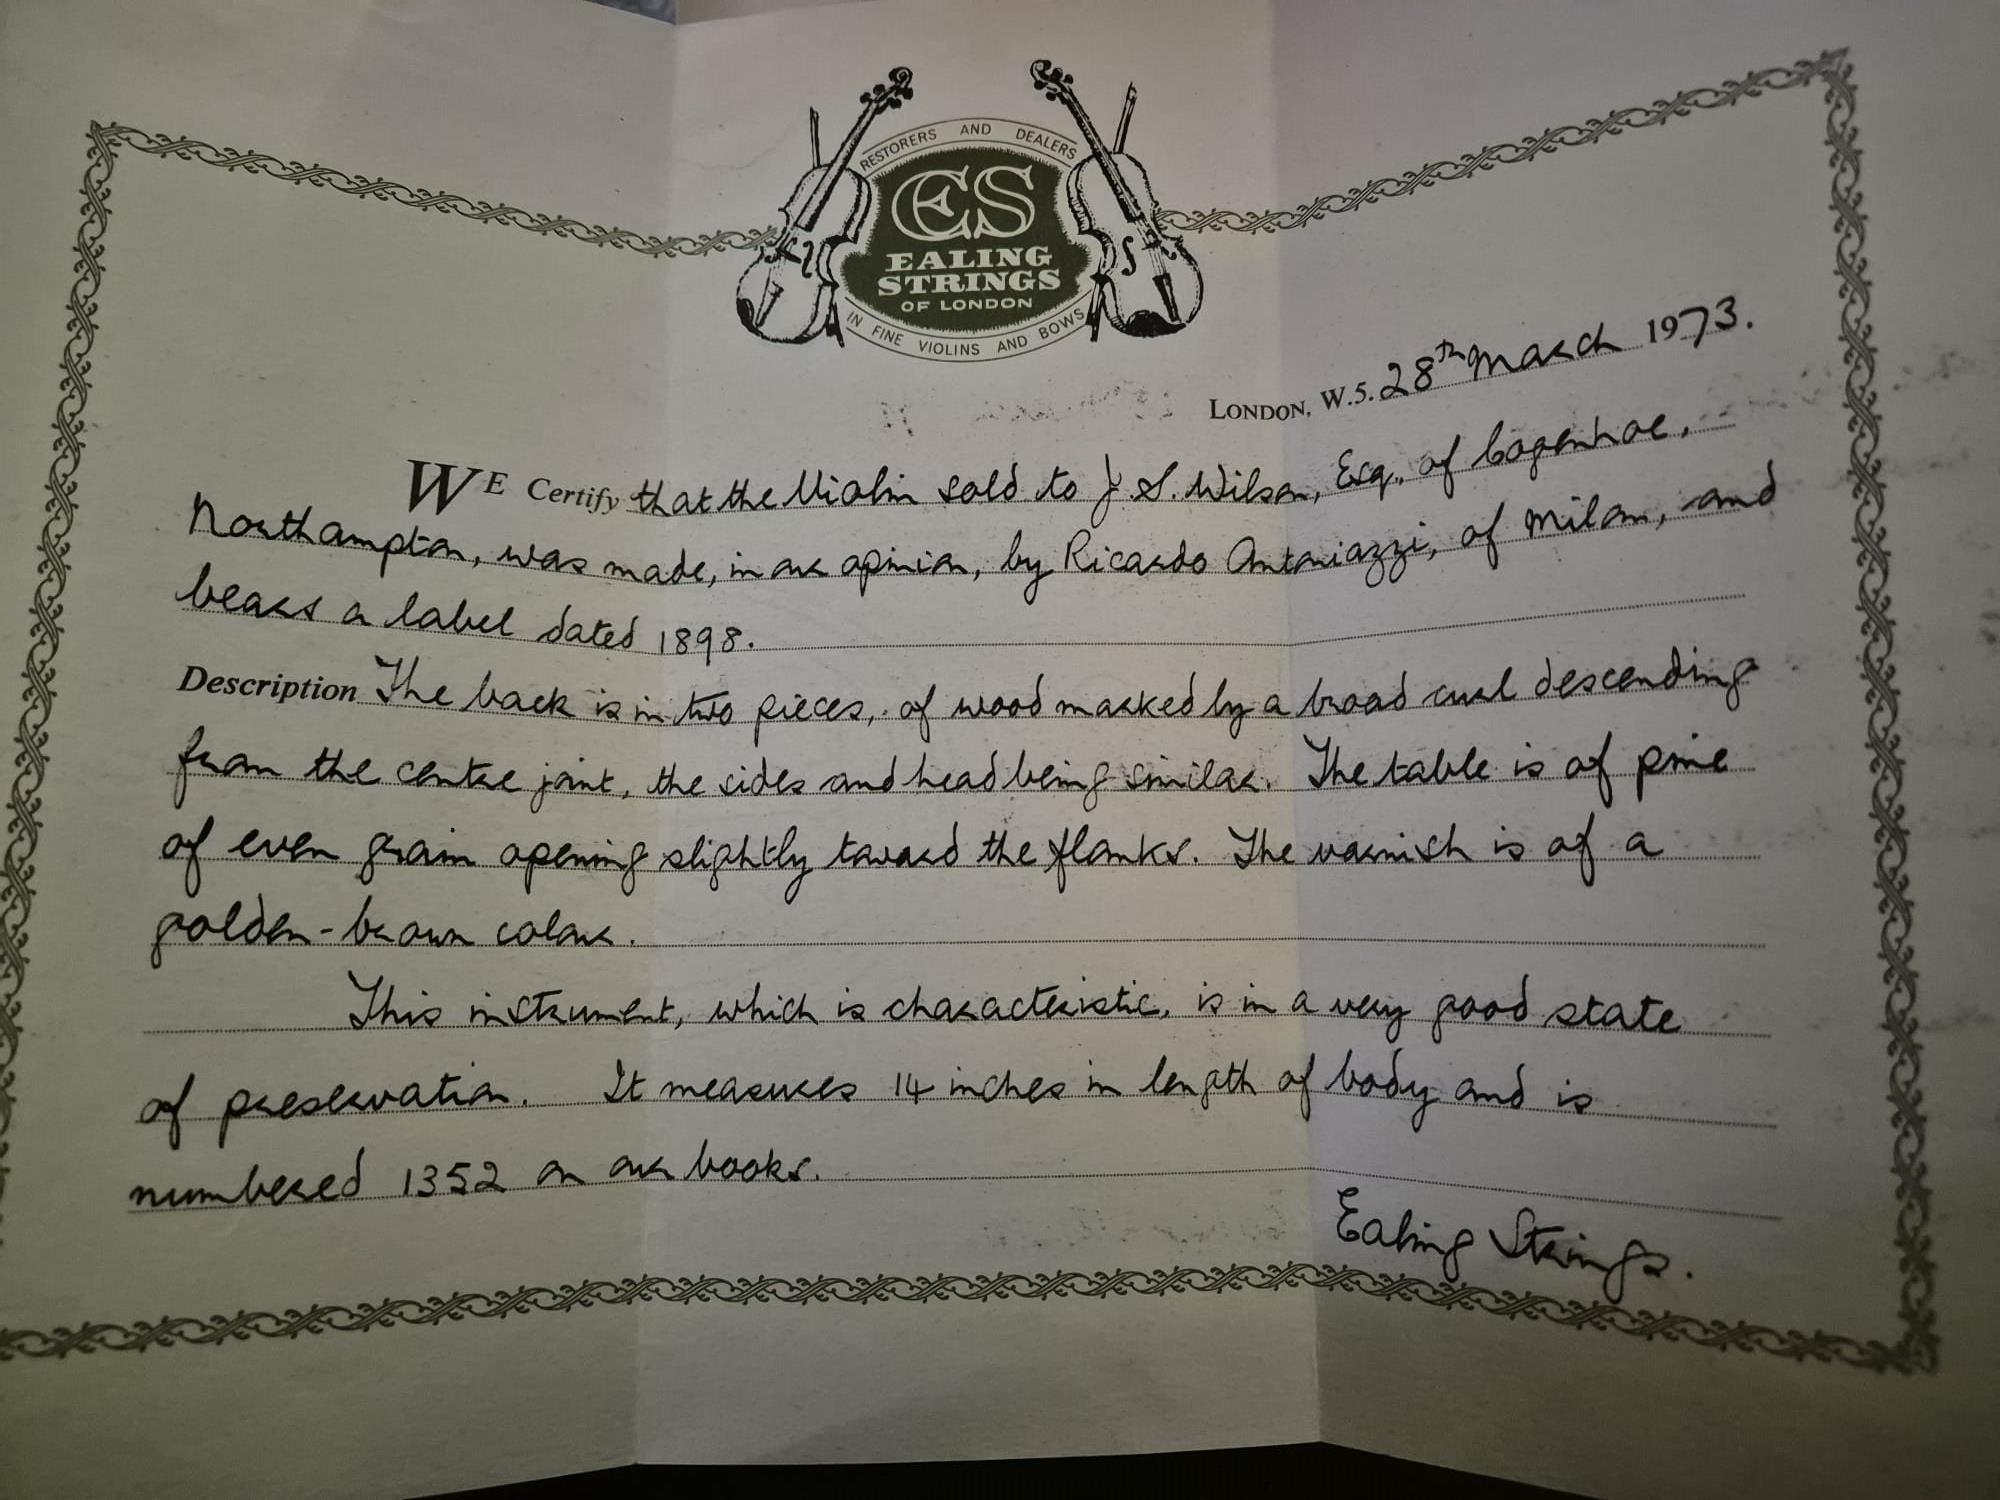 RESTORERS AND DEALERS
ES
EALING
STRINGS
OF LONDON
IN FINE VIOLINS AND BOWS
LONDON, W.5. 28th March 1973.
WE Certify that the Violin sold to J. S. Wilson, Esq., of Cogenhoe,
Northampton, was made, in our opinion, by Ricardo Antoniazzi, of Milan, and
bears a label dated 1898.
Description The back is in two pieces, of wood marked by a broad curl descending
from the centre joint, the sides and head being similar. The table is of pine
of even grain opening slightly toward the flanks. The varnish is of a
golden-brown colour.
This instrument, which is characteristic, is in a very good state
of preservation. It measures 14 inches in length of body and is
numbered 1352 on our books.
Ealing Strings.